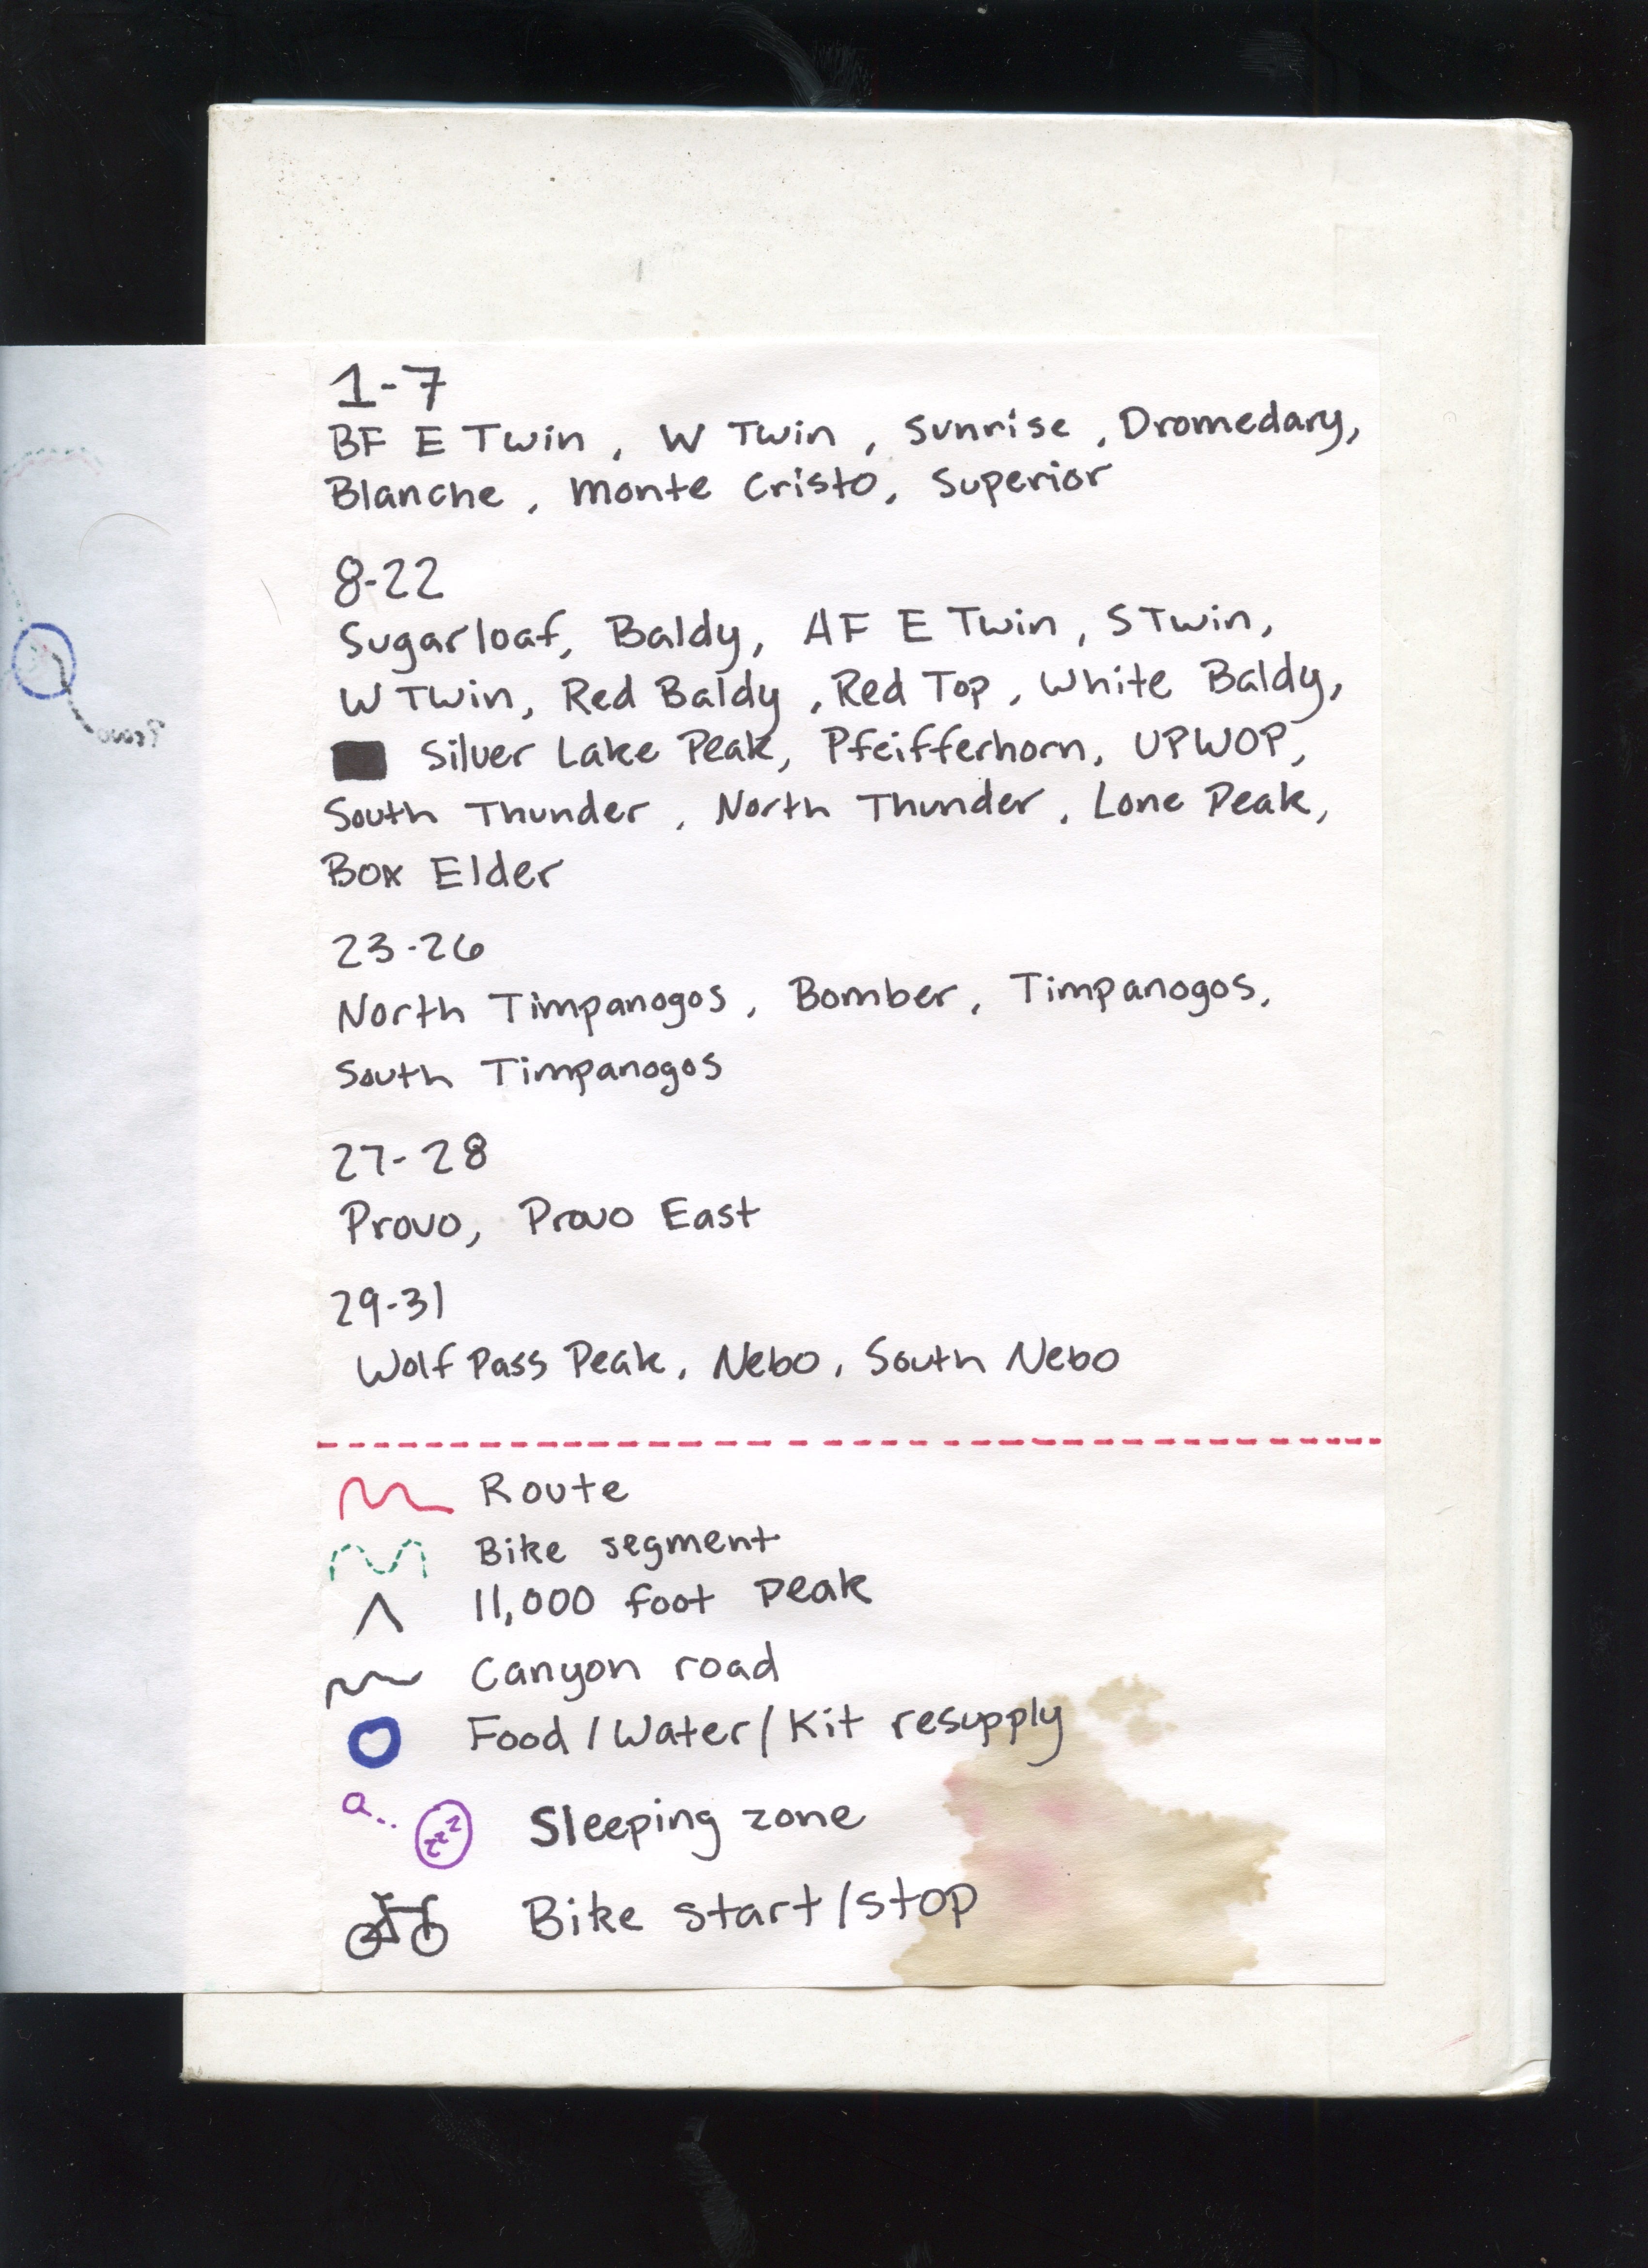 1-7
BF E Twin, W Twin, Sunrise, Dromedary,
Blanche, Monte Cristo, Superior
8-22
Sugarloaf, Baldy, AF E Twin, S Twin,
W Twin, Red Baldy, Red Top, White Baldy,
Silver Lake Peak, Pfeifferhorn, UPWOP,
South Thunder, North Thunder, Lone Peak,
Box Elder
23-26
North Timpanogos, Bomber, Timpanogos,
South Timpanogos
27-28
Provo, Provo East
29-31
Wolf Pass Peak, Nebo, South Nebo
Route
Bike segment
11,000 foot peak
Canyon road
Food/Water/Kit resupply
a.. zzz Sleeping zone
Bike start/stop
Provo